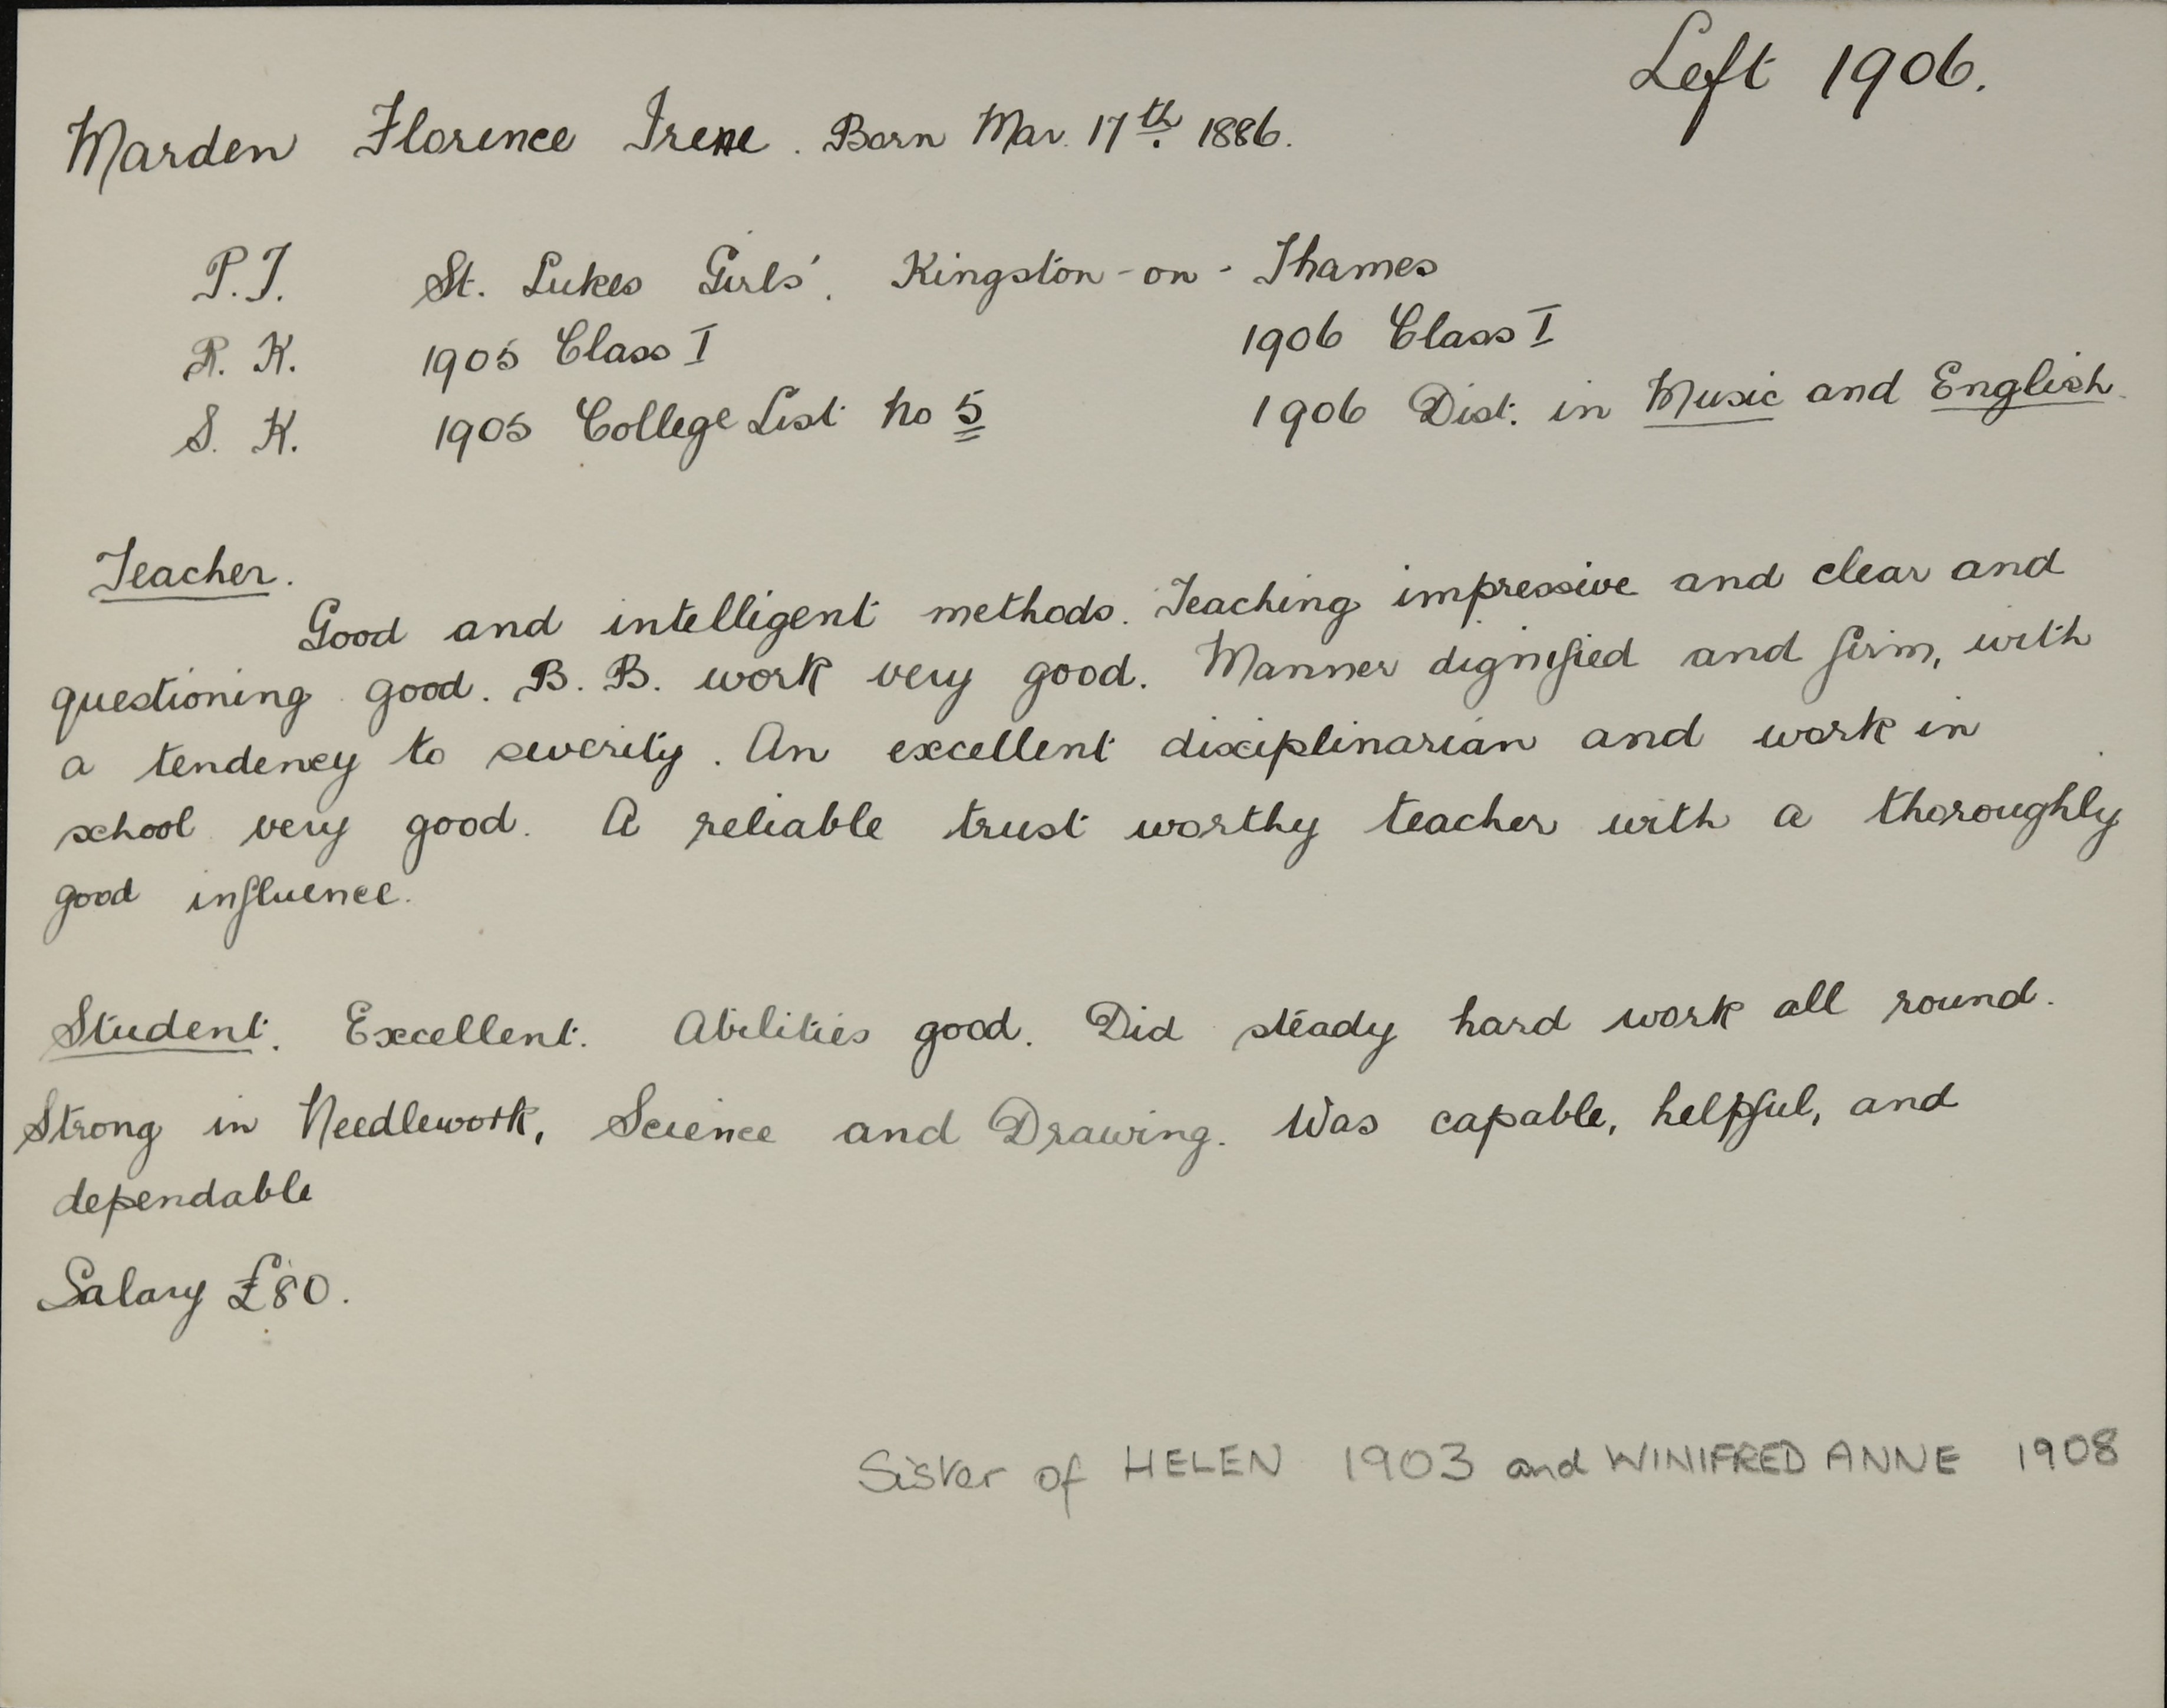 Left 1906.
Marden Florence Irene. Born Mar. 17th. 1886.
P.T. St. Lukes Girls'. Kingston-on-Thames
R. K. 1905 Class I 1906 Class I
S. K. 1905 College List No 5 1906 Dist. in Music and English.
Teacher.
Good and intelligent methods. Teaching impressive and clear and
questioning good. B. B. work very good. Manner dignified and firm, with
a tendency to severity. An excellent disciplinarian and work in
school very good. A reliable trust worthy teacher with a thoroughly
good influence.
Student. Excellent. Abilities good. Did steady hard work all round.
Strong in Needlework, Science and Drawing. Was capable, helpful, and
dependable
Salary £80.
Sister of HELEN 1903 and WINIFRED ANNE 1908